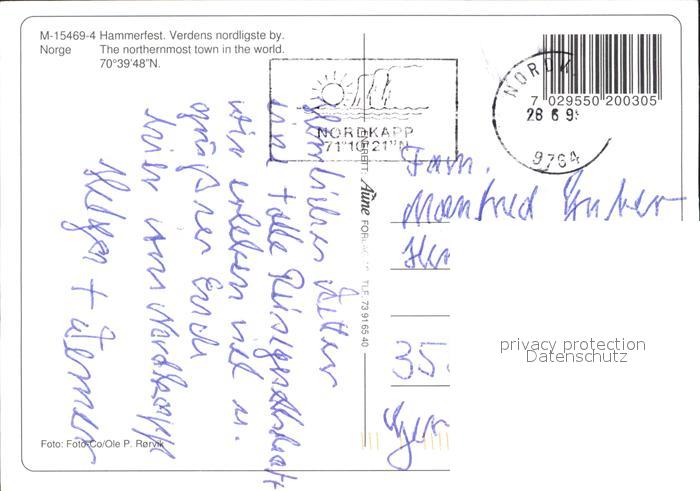 M-15469-4 Hammerfest. Verdens nordligste by.
Norge The northernmost town in the world.
70°39'48"N.
NORDKAPP
71°10'21"N
NORDK
7 029550 200305
28 6 9
9764
Aune FORLAG
TLF. 73 91 65 40
Herzliche Grüße
eine tolle Reisegesellschaft
wir erleben viel u.
grüßen Euch
hier am Nordkapp
Helga + Werner
Fam.
Manfred Huber
35
privacy protection
Datenschutz
Foto: Foto-Co/Ole P. Rørvik